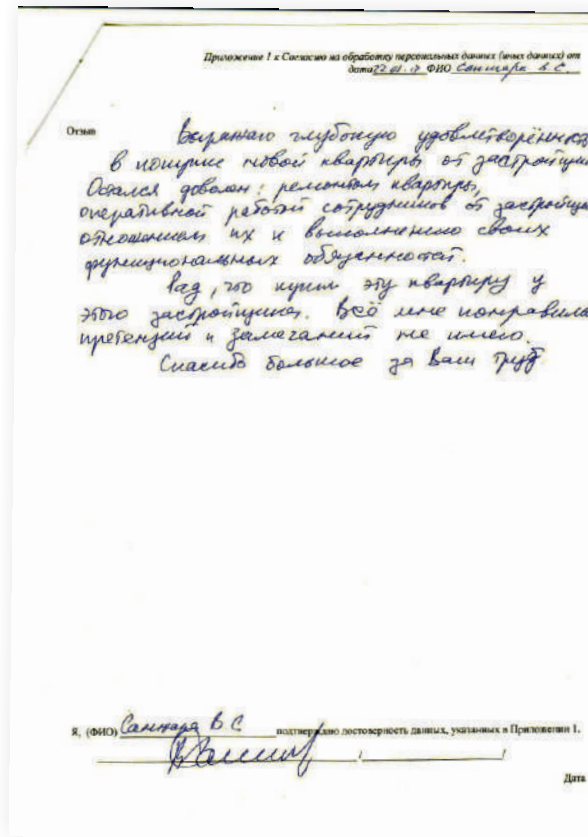 Приложение 1 к Согласию на обработку персональных данных (иных данных) от
дата 22.01.17 ФИО Санжара В.С.
Отзыв Выражаю глубокую удовлетворённост
в покупке новой квартиры от застройщи
Остался доволен: ремонтом квартиры,
оперативной работой сотрудников от застройщи
отношением их к выполнению своих
функциональных обязанностей.
Рад, что купил эту квартиру у
этого застройщика. Всё мне понравило
претензий и замечаний не имею.
Спасибо большое за Ваш труд.
Я, (ФИО) Санжара В С подтверждаю достоверность данных, указанных в Приложении 1.
/ /
Дата